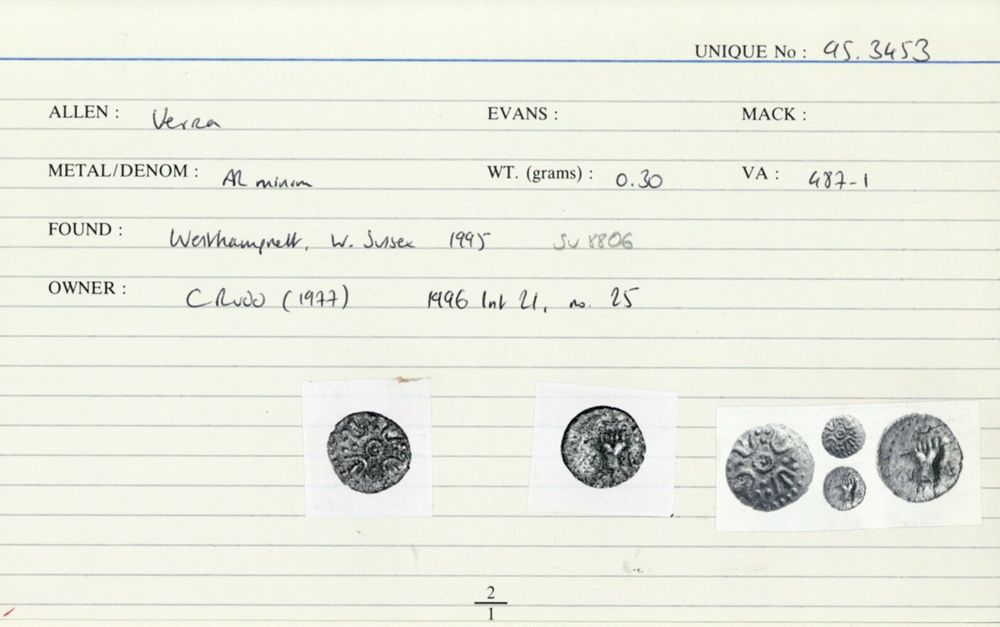 UNIQUE No : 95.3453
ALLEN : Verica EVANS : MACK :
METAL/DENOM : AR minim WT. (grams) : 0.30 VA : 487-1
FOUND : Westhampnett, W. Sussex 1995 SU 8806
OWNER : C Rudd (1977) 1996 list 21, no. 25
2
1